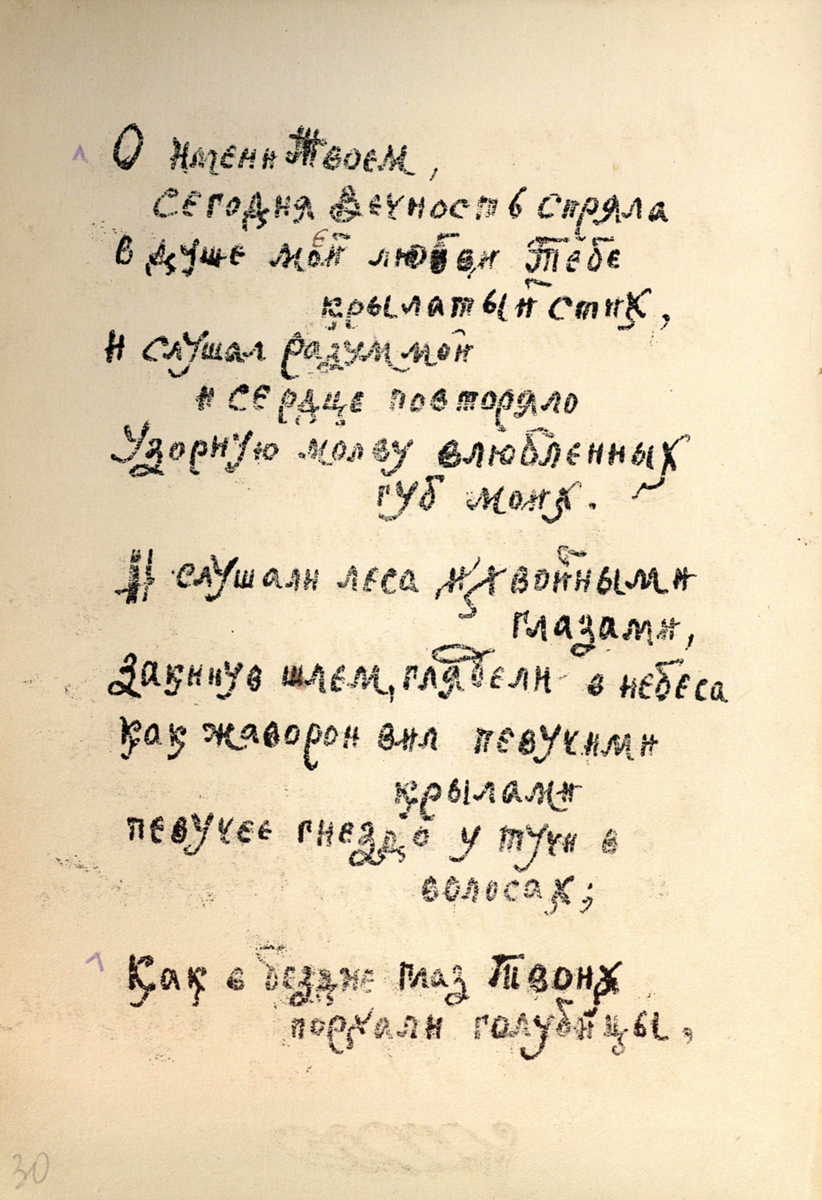 О имени Твоем,
сегодня Вечность спряла
в душе моей любви Тебе
крылатый стих,
и слушал разум мой
и сердце повторяло
Узорную молву влюбленных
губ моих.
И слушали леса их хвойными
глазами,
закинув шлем, глядели в небеса
как жаворон вил певучими
крылами
певучее гнездо у тучи в
волосах;
Как в бездне глаз Твоих
порхали голубицы,
30